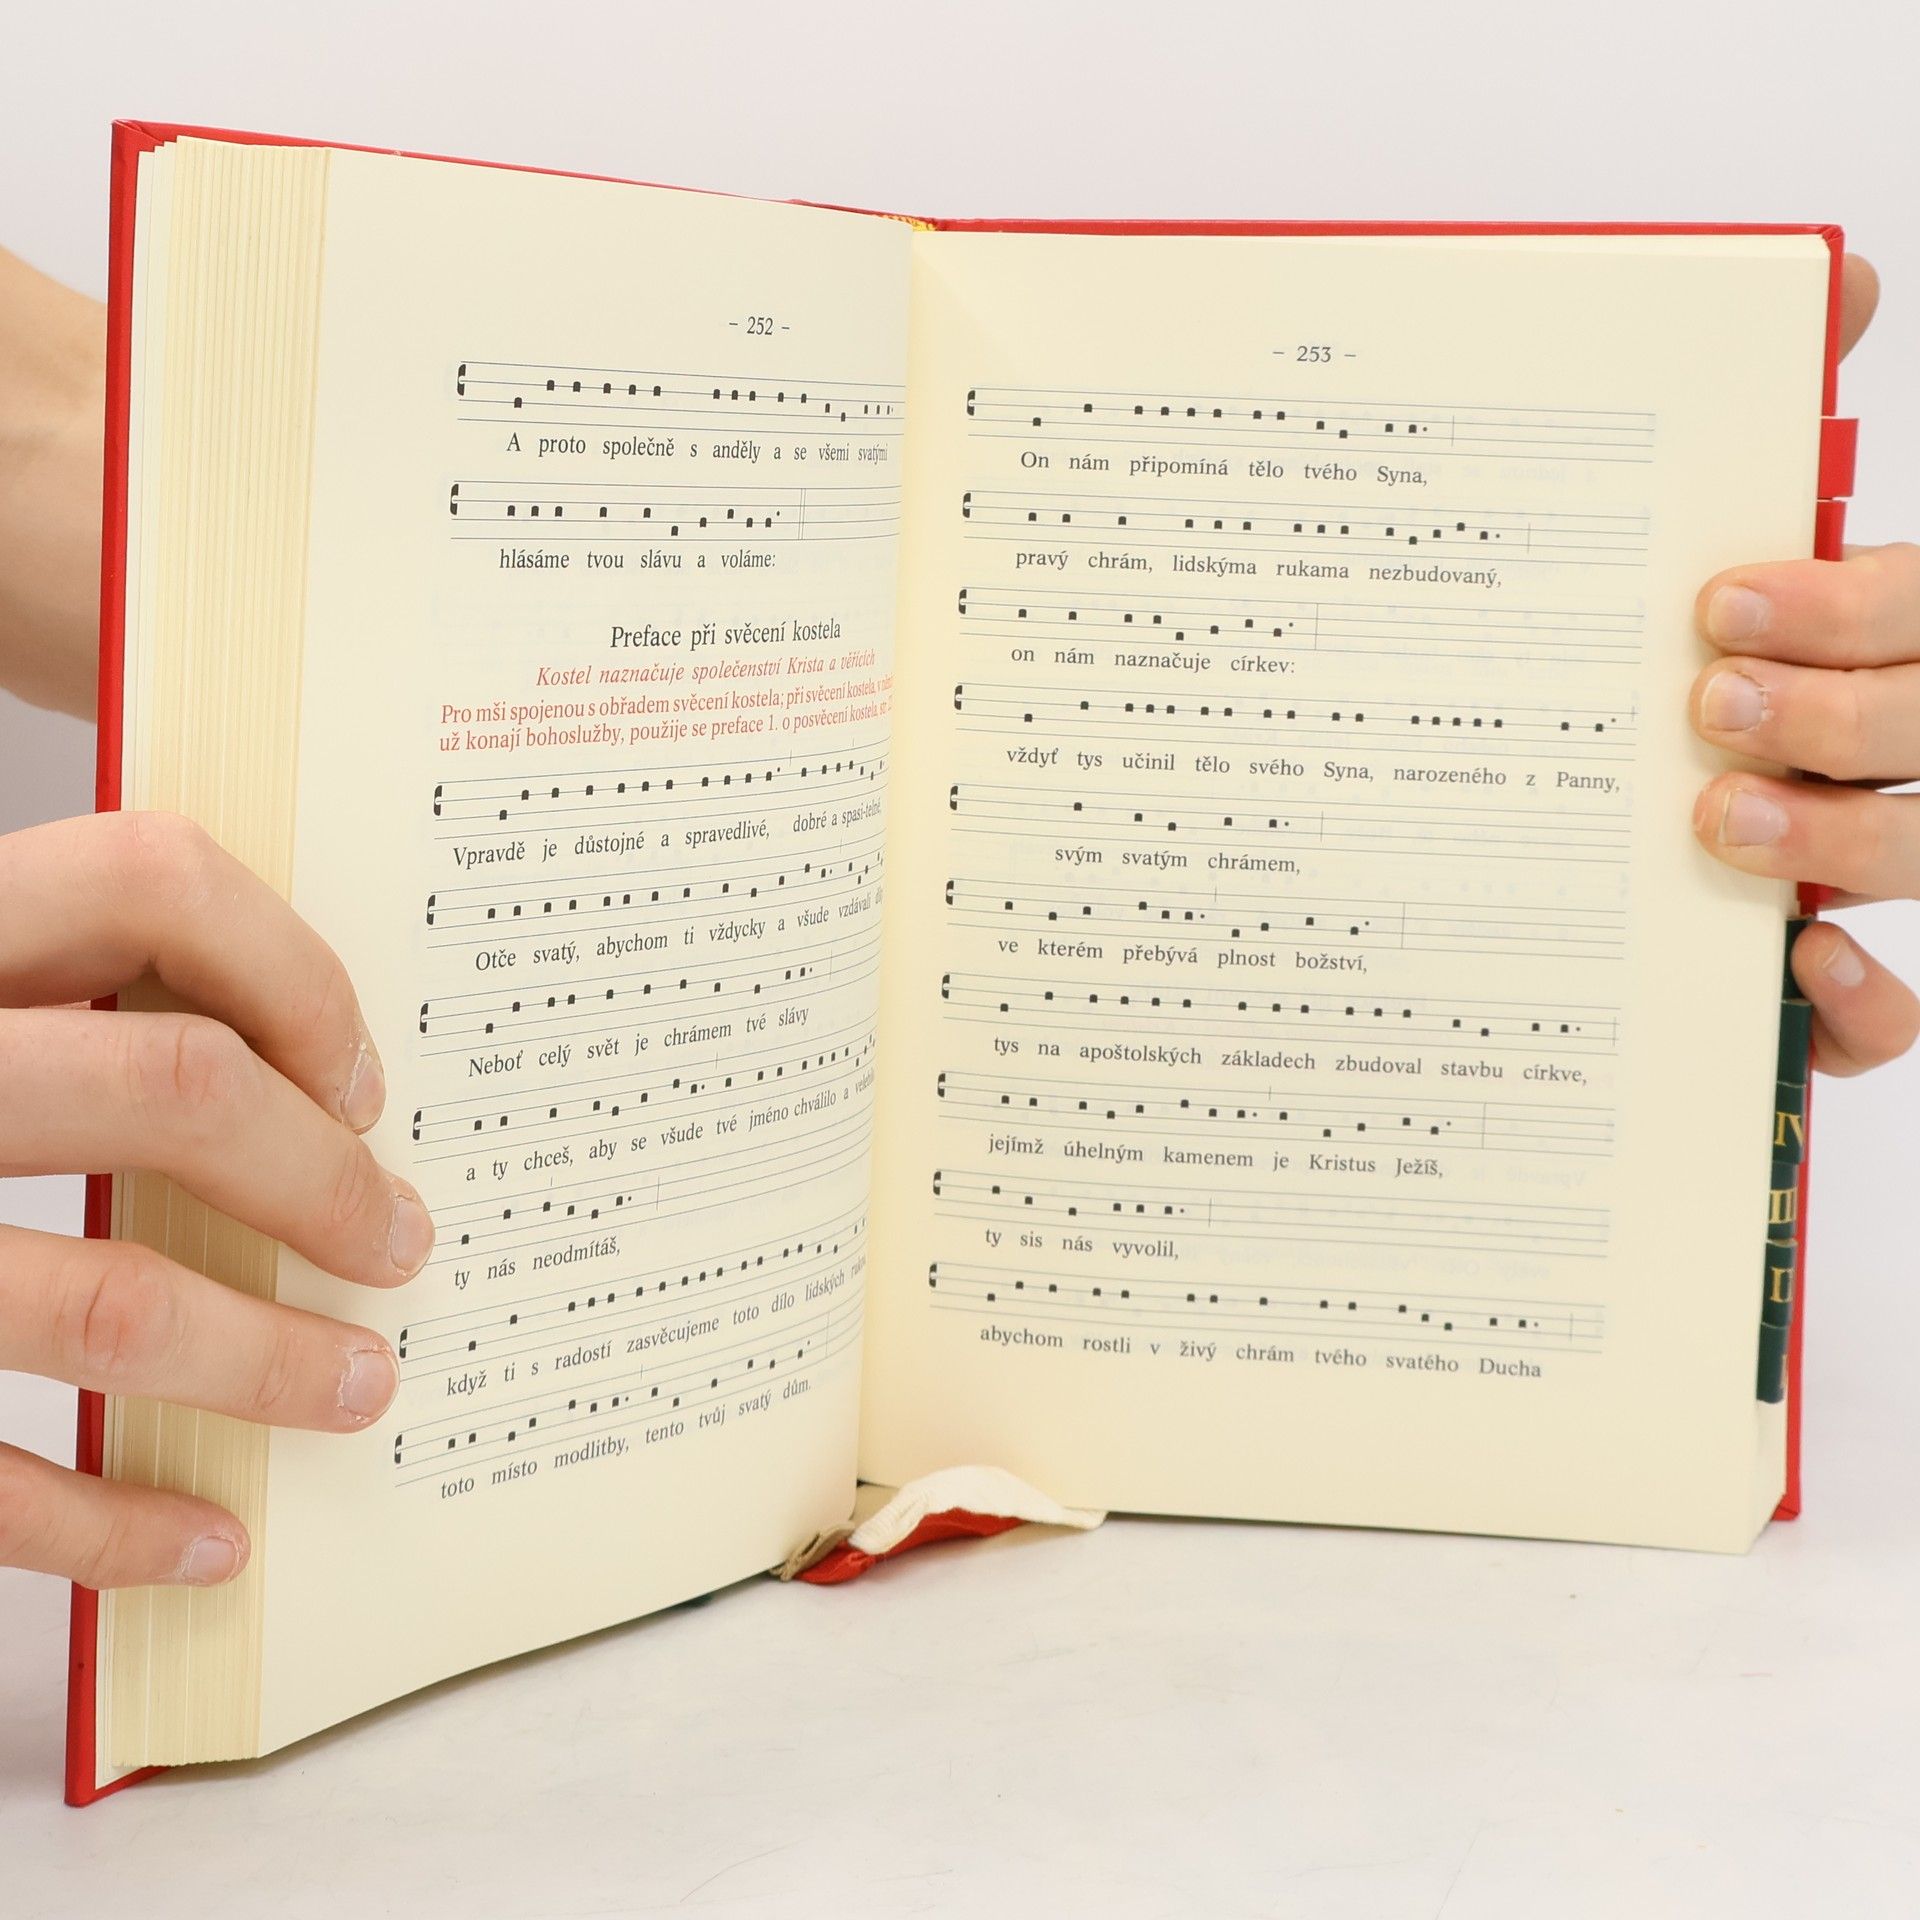 – 252 –
A proto společně s anděly a se všemi svatými
hlásáme tvou slávu a voláme:
Preface při svěcení kostela
Kostel naznačuje společenství Krista a věřících
Pro mši spojenou s obřadem svěcení kostela; při svěcení kostela, v
už konají bohoslužby, použije se preface 1. o posvěcení kostela, str.
Vpravdě je důstojné a spravedlivé, dobré a spasi-telné,
Otče svatý, abychom ti vždycky a všude vzdávali
Neboť celý svět je chrámem tvé slávy
a ty chceš, aby se všude tvé jméno chválilo a
ty nás neodmítáš,
když ti s radostí zasvěcujeme toto dílo lidských
toto místo modlitby, tento tvůj svatý dům.
– 253 –
On nám připomíná tělo tvého Syna,
pravý chrám, lidskýma rukama nezbudovaný,
on nám naznačuje církev:
vždyť tys učinil tělo svého Syna, narozeného z Panny,
svým svatým chrámem,
ve kterém přebývá plnost božství,
tys na apoštolských základech zbudoval stavbu církve,
jejímž úhelným kamenem je Kristus Ježíš,
ty sis nás vyvolil,
abychom rostli v živý chrám tvého svatého Ducha
IV
III
II